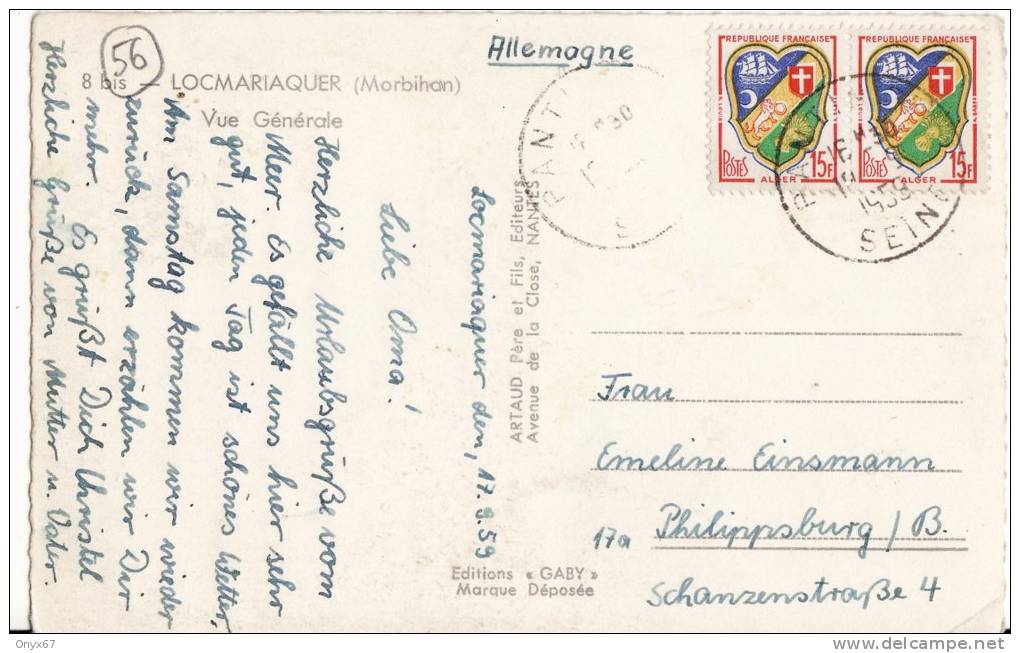 56
8 bis — LOCMARIAQUER (Morbihan)
Vue Générale
Locmariaquer den, 17.9.59
Liebe Oma!
Herzliche Urlaubsgrüße vom
Meer. Es gefällt uns hier sehr
gut, jeden Tag ist schönes Wetter.
Am Samstag kommen wir wieder
zurück, dann erzählen wir Dir
mehr. Es grüßt Dich Christel
Herzliche Grüße von Mutter u. Vater.
ARTAUD Père et Fils, Editeurs
Avenue de la Close, NANTES
Editions « GABY »
Marque Déposée
Allemagne
REPUBLIQUE FRANÇAISE
POSTES
15F
ALGER
REPUBLIQUE FRANÇAISE
POSTES
15F
ALGER
PANTIN
1959
SEINE
Frau
Emeline Einsmann
17a Philippsburg/B.
Schanzenstraße 4
Onyx67
delcampe.net